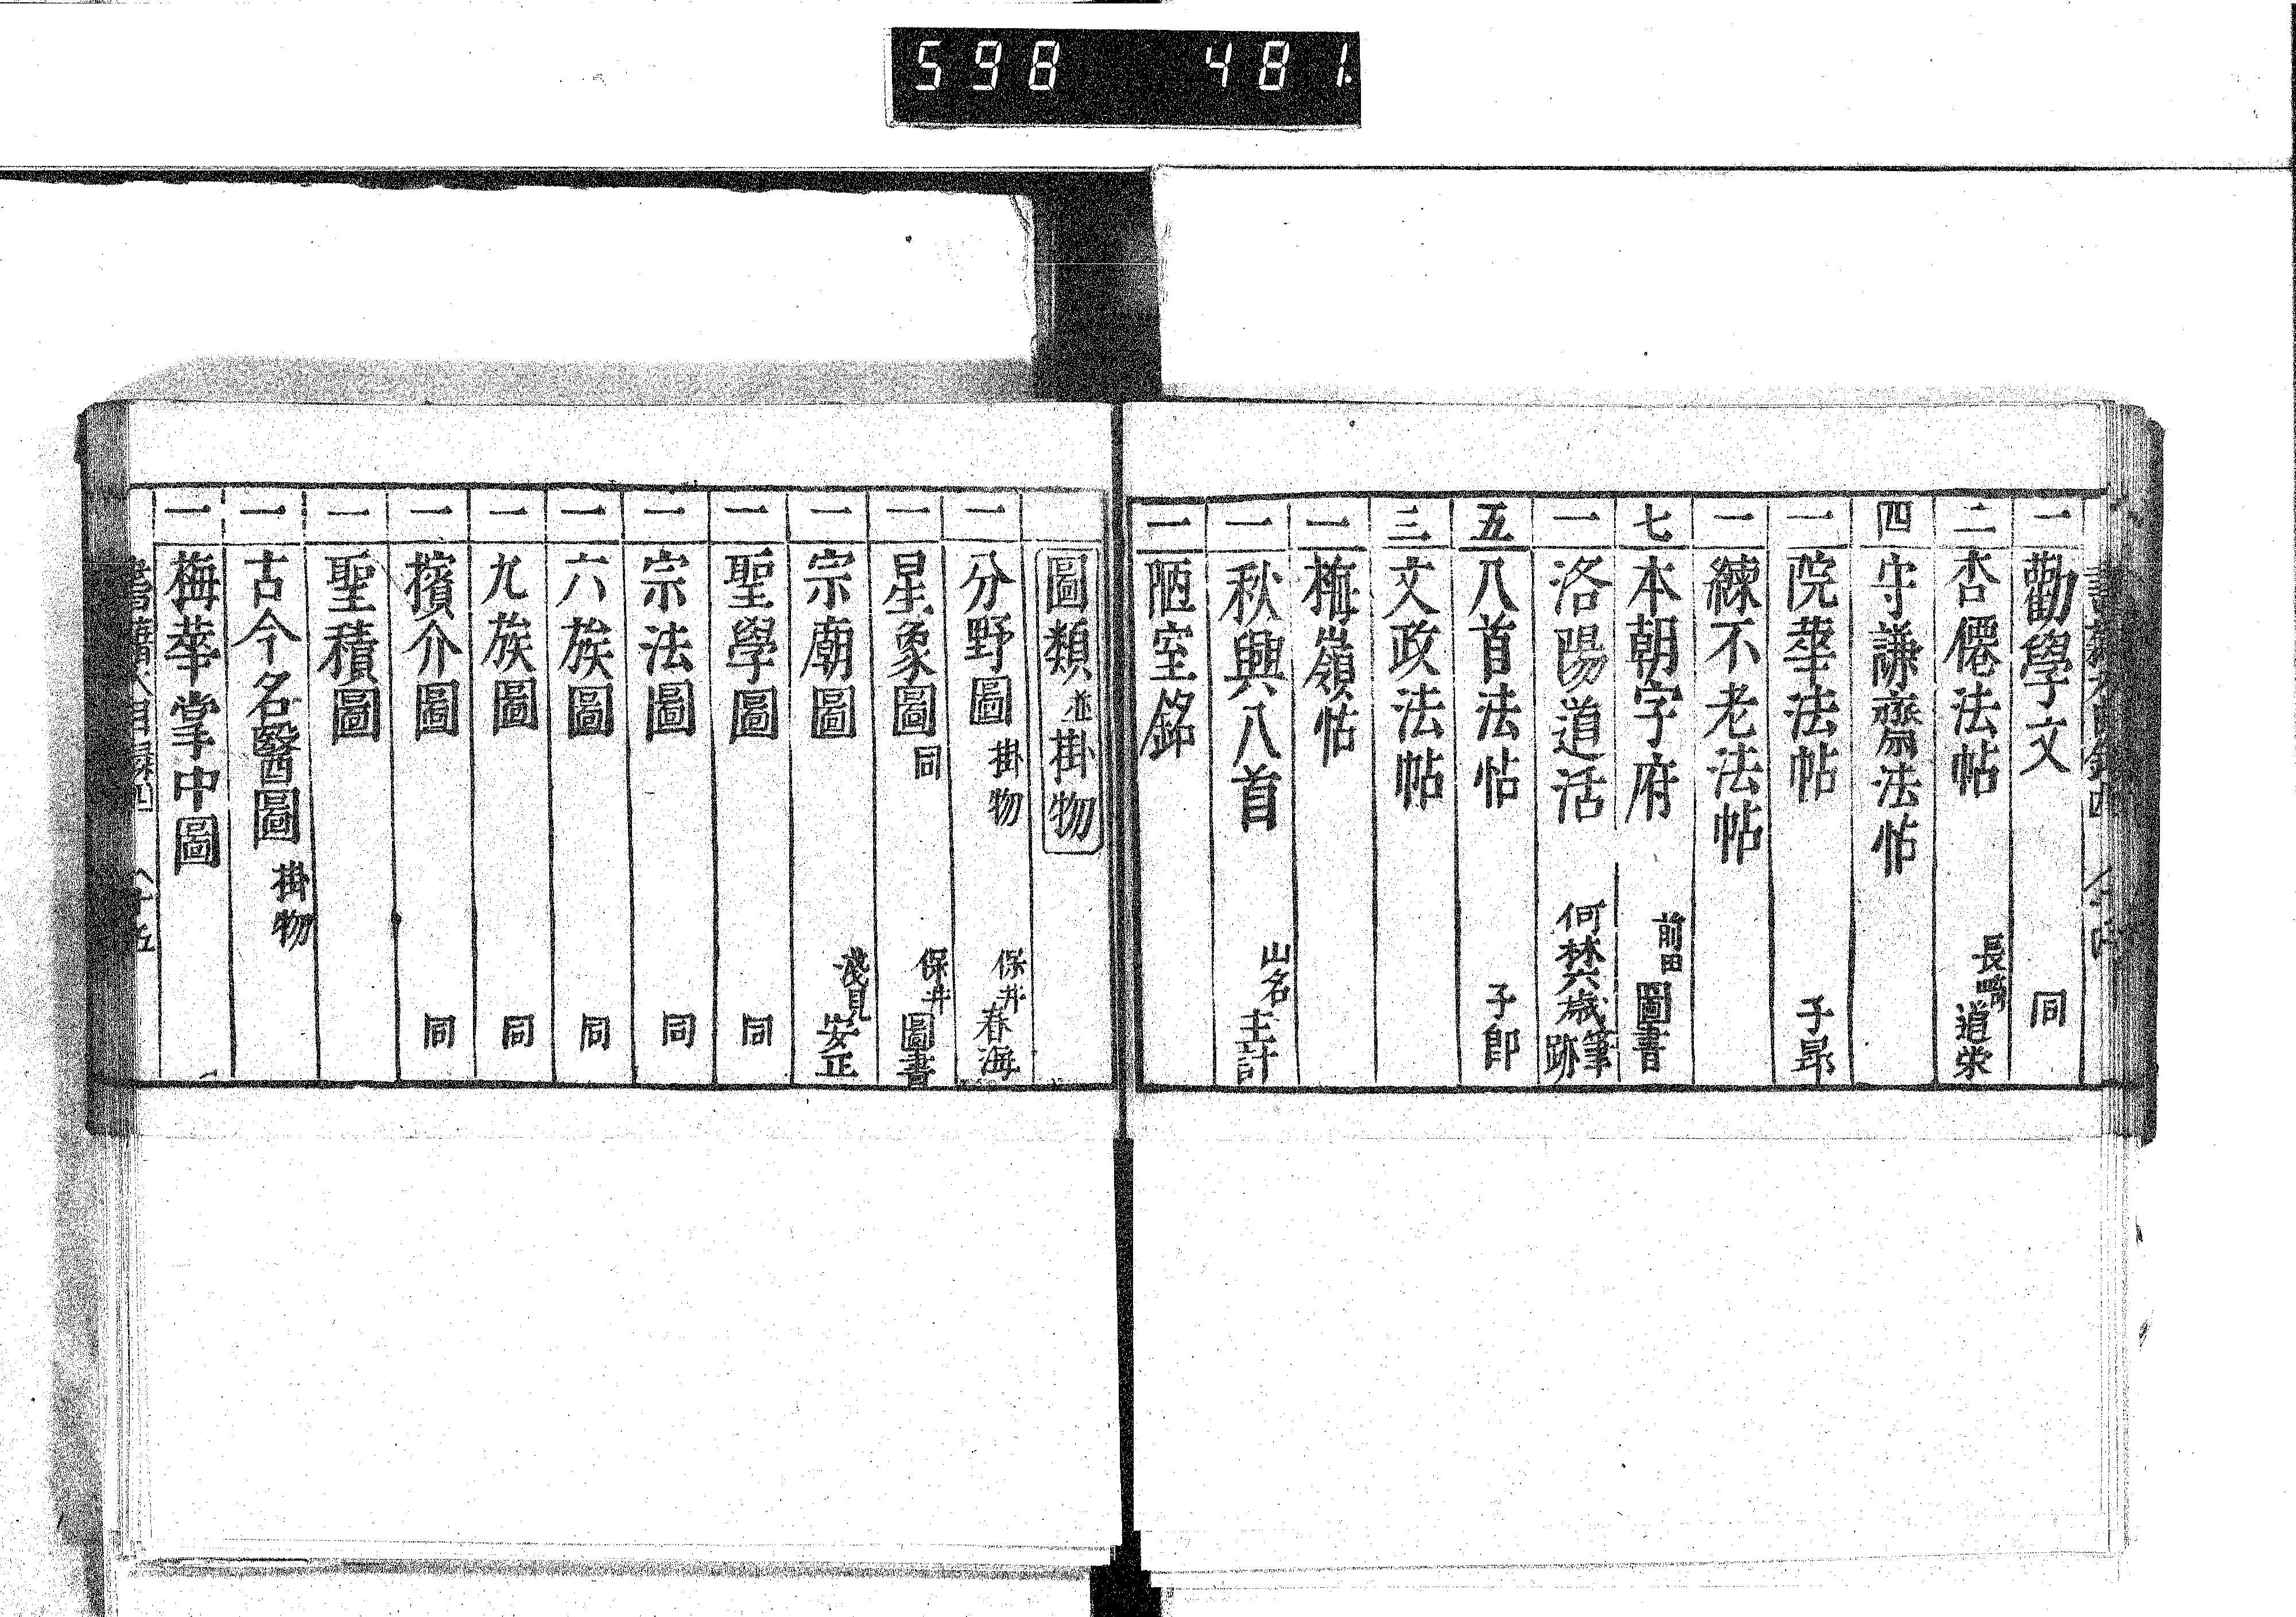 598 481.
一 勸學文 同
二 杏僊法帖 長﨑 道栄
四 守謙齋法帖
一 院華法帖 子昂
一 練不老法帖
七 本朝字府 前田 圖書
一 洛陽道活 何林六歳筆跡
五 八首法帖 子郎
三 文政法帖
一 梅嶺帖
一 秋興八首 山名 主計
一 陋室銘
圖類 並 掛物
一 分野圖 掛物 保井 春海
一 星象圖 同 保井 圖書
一 宗廟圖 淺見 安正
一 聖學圖 同
一 宗法圖 同
一 六族圖 同
一 九族圖 同
一 擯介圖 同
一 聖積圖
一 古今名醫圖 掛物
一 梅華掌中圖